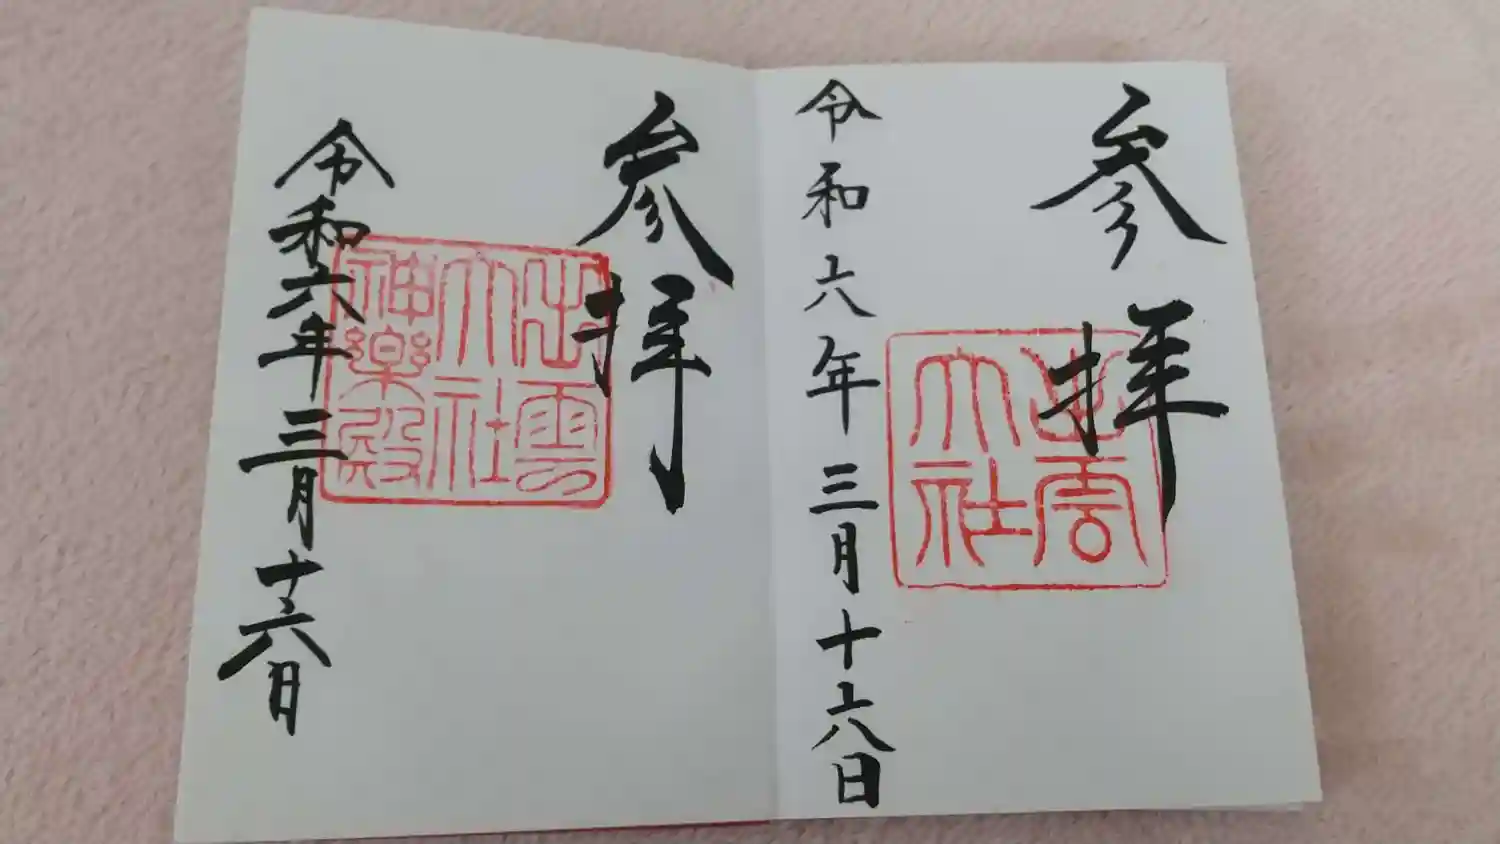 参拝
出雲
大社
令和六年三月十六日
参拝
出雲
大社
神楽殿
令和六年三月十六日